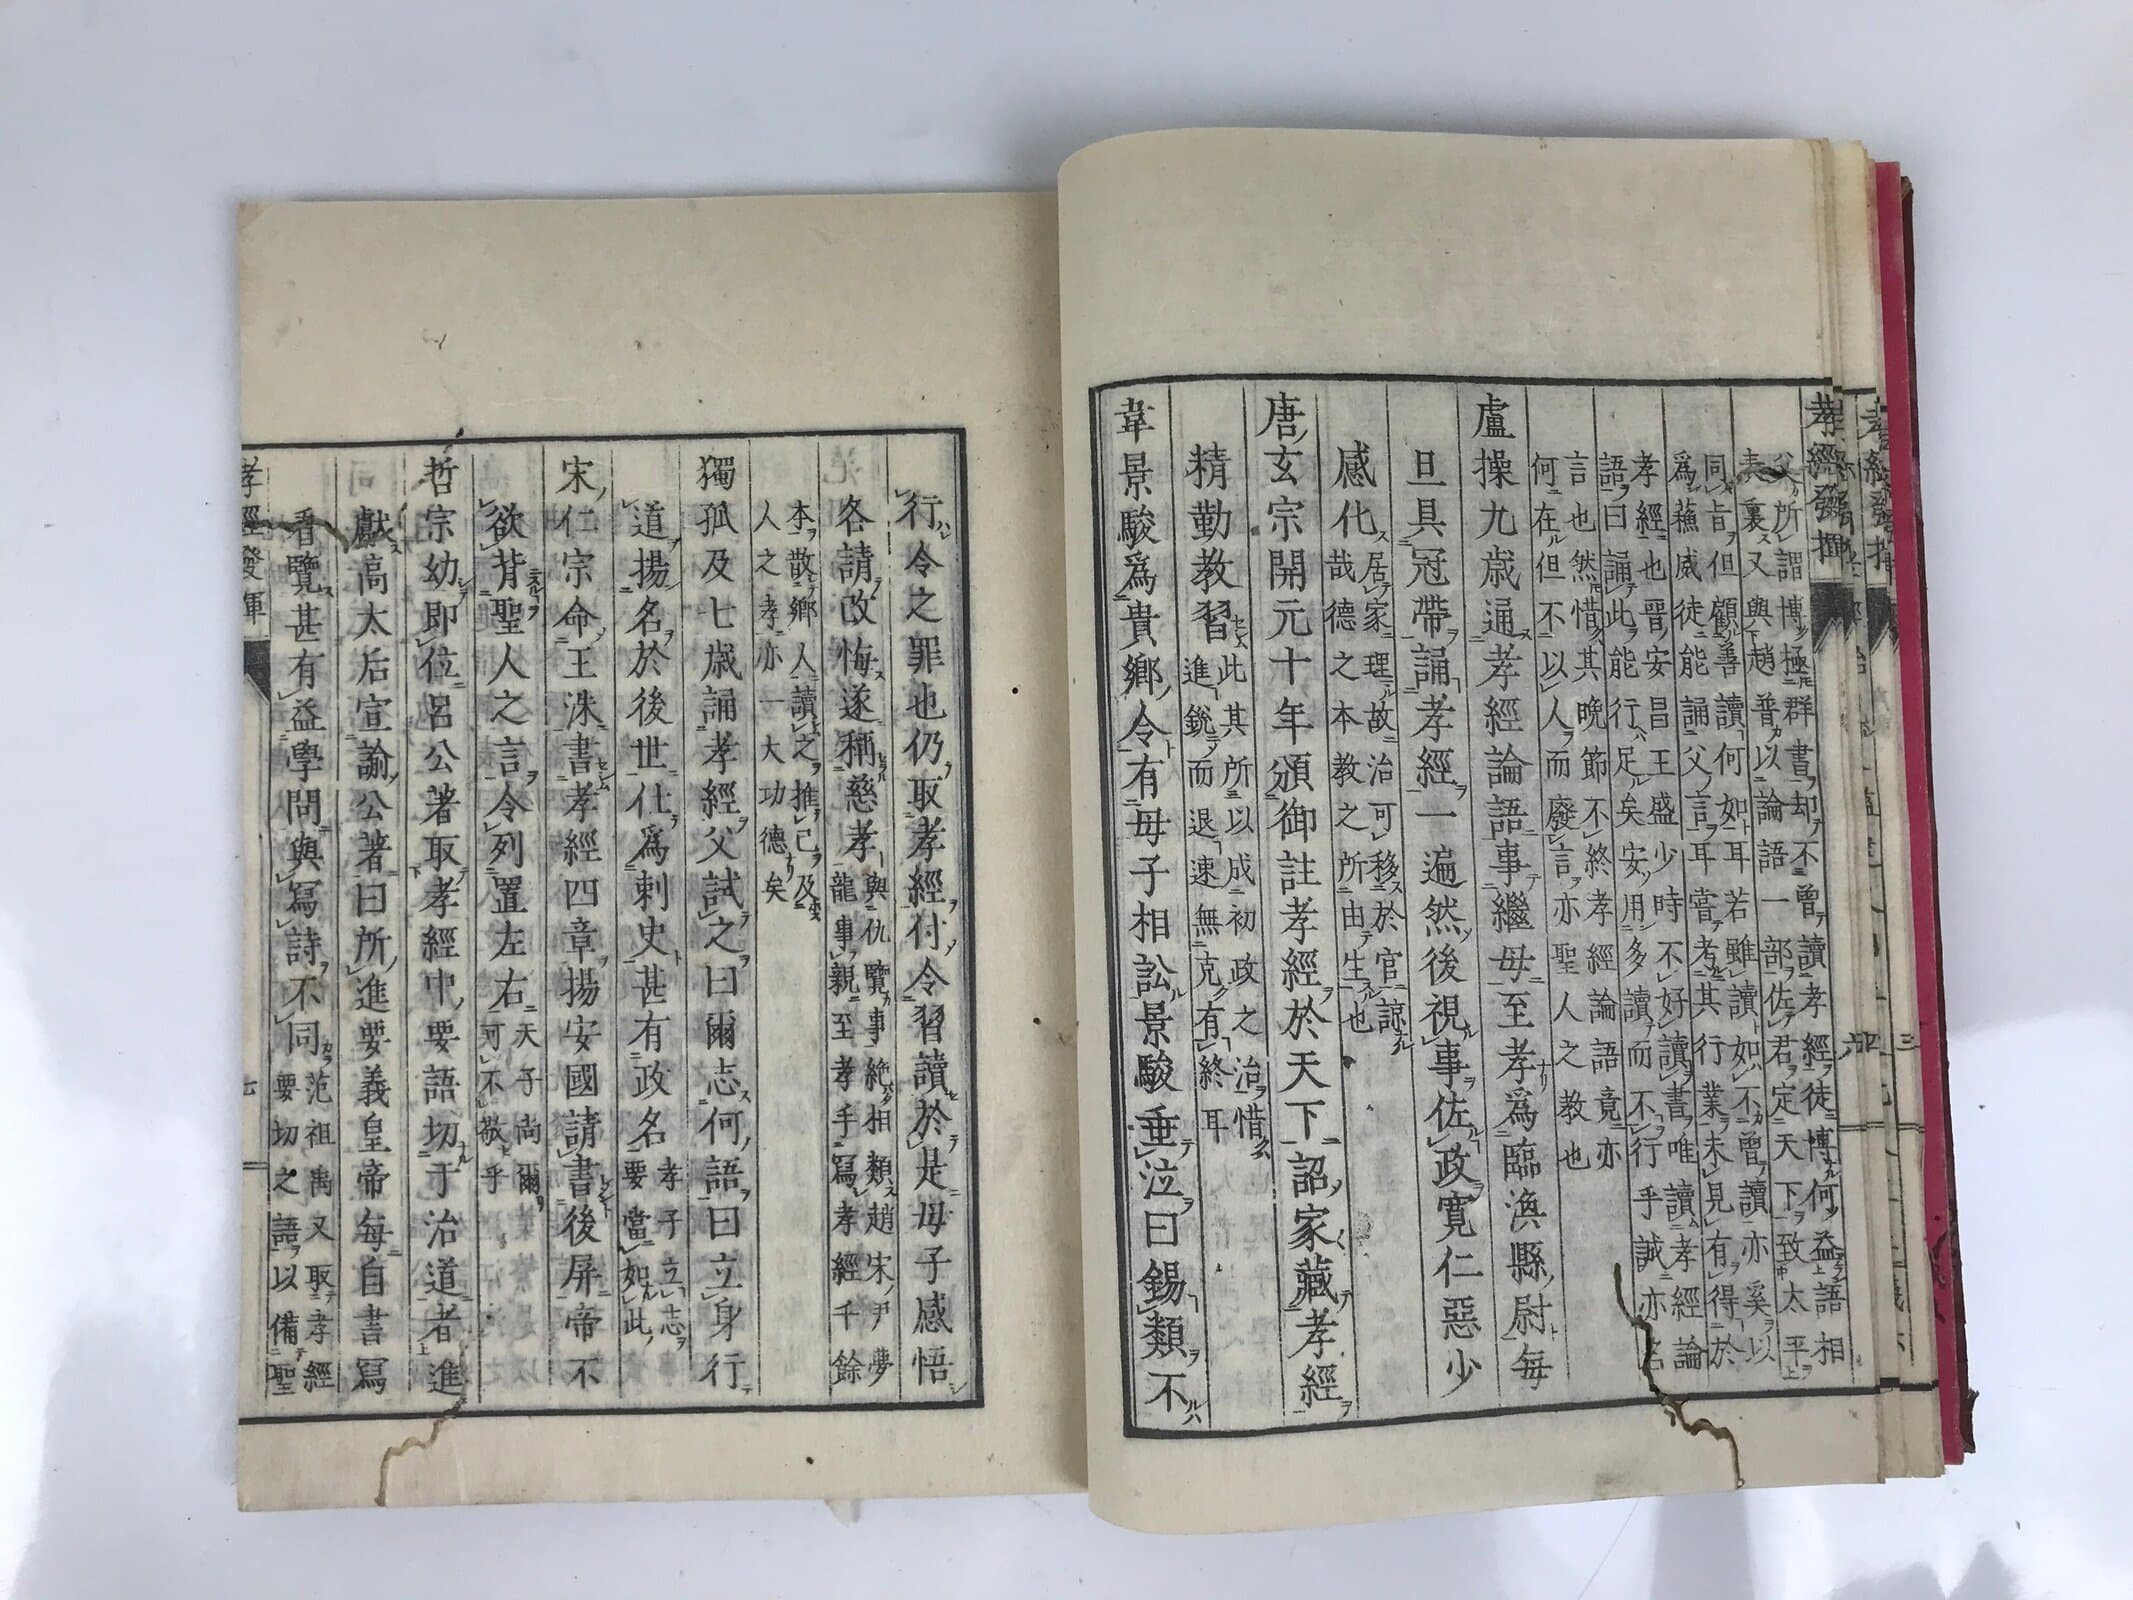 孝經發揮
父所謂博極群書却不曾讀孝經徒博何益語相
表裏又與趙普以論語一部佐君定天下致太平
同旨但顧善讀何如耳若雖讀如不曾讀亦奚以
為蘇威徒能誦父言耳嘗考其行業未見有得於
孝經也晋安昌王盛少時不好讀書唯讀孝經論
語曰誦此能行足矣安用多讀而不行乎誠亦名
言也然惜其晚節不終孝經論語竟亦
何在但不以人而廢言亦聖人之教也
盧操九歲通孝經論語事繼母至孝為臨渙縣尉每
旦具冠帶誦孝經一遍然後視事佐政寬仁惡少
感化居家理故治可移於官諒
哉德之本教之所由生也
唐玄宗開元十年頒御註孝經於天下詔家藏孝經
精勤教習此其所以成初政之治惜
進銳而退速無克有終耳
韋景駿為貴鄉令有母子相訟景駿垂泣曰錫類不
行令之罪也仍取孝經付令習讀於是母子感悟
各請改悔遂稱慈孝與仇覽事絶相類趙宋尹夢
龍事親至孝手寫孝經千餘
本散鄉人讀之推己及
人之孝亦一大功德矣
獨孤及七歲誦孝經父試之曰爾志何語曰立身行
道揚名於後世仕為刺史甚有政名孝子立志
要當如此
宋仁宗命王洙書孝經四章揚安國請書後屏帝不
欲背聖人之言令列置左右天子尚爾
可不敬乎
哲宗幼即位呂公著取孝經中要語切于治道者進
獻高太后宣諭公著曰所進要義皇帝每自書寫
看覽甚有益學問與寫詩不同范祖禹又取孝經
要切之語以備聖
孝經發揮
七